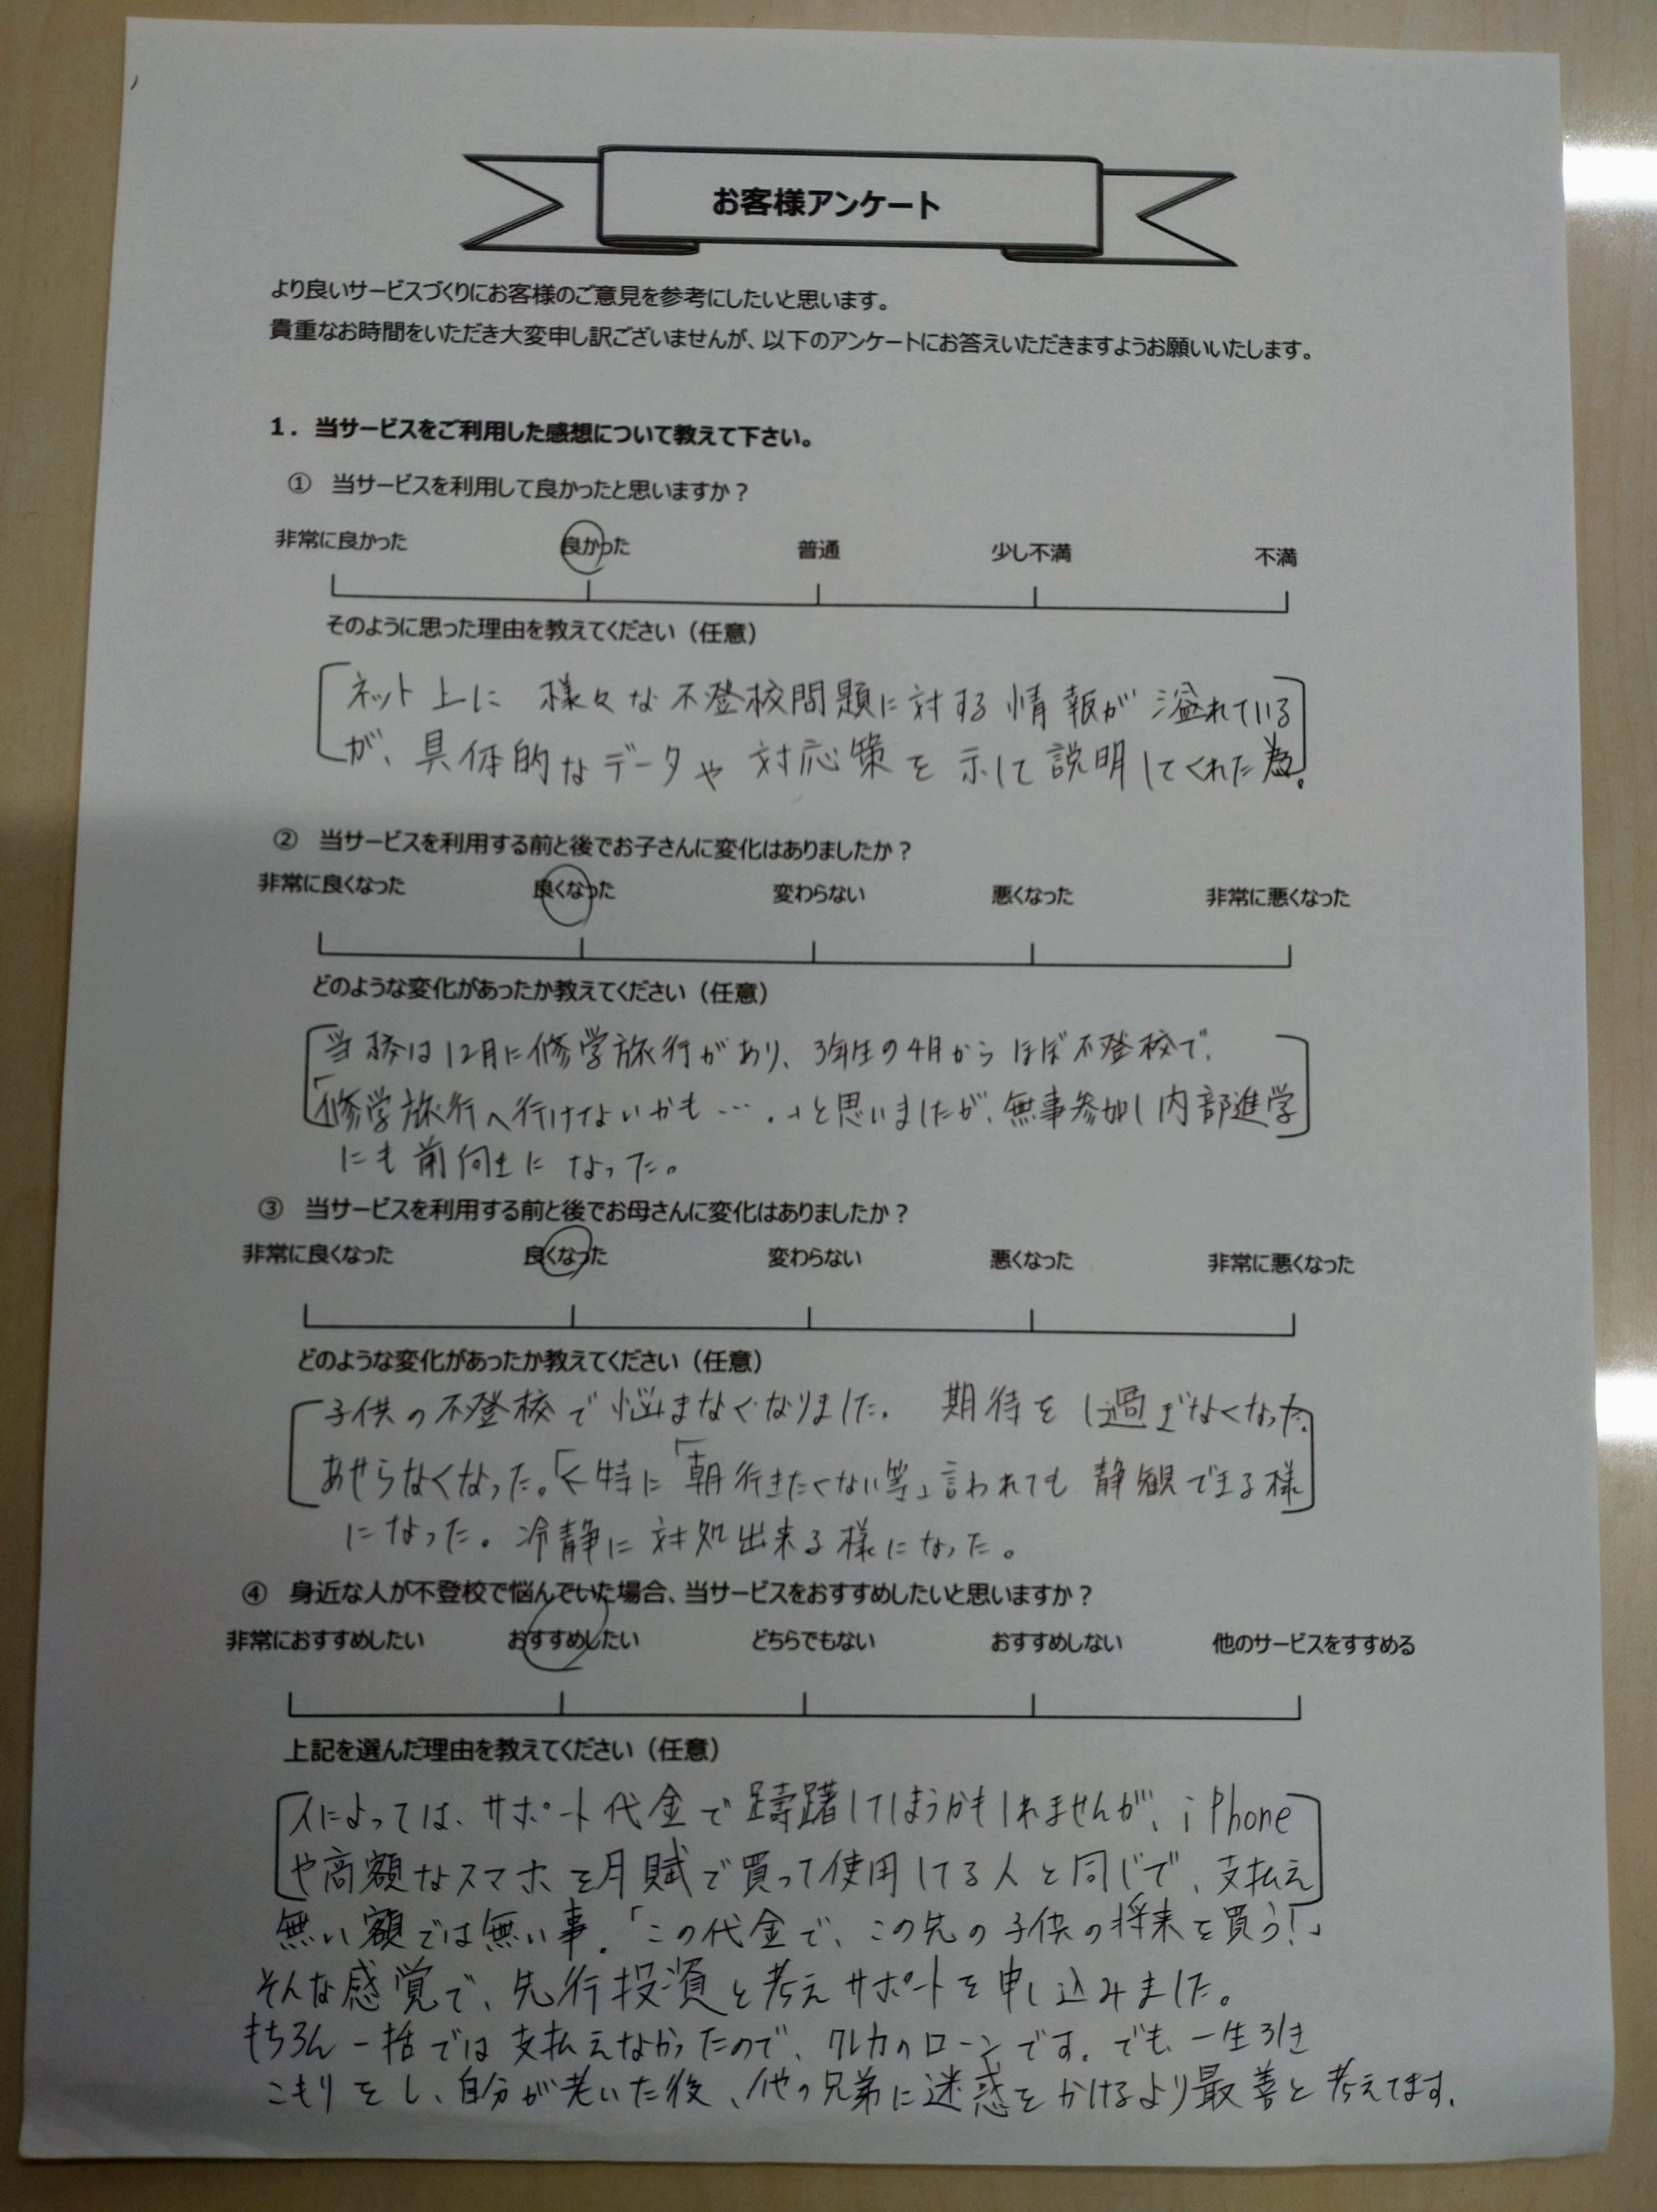 お客様アンケート
より良いサービスづくりにお客様のご意見を参考にしたいと思います。
貴重なお時間をいただき大変申し訳ございませんが、以下のアンケートにお答えいただきますようお願いいたします。
１．当サービスをご利用した感想について教えて下さい。
① 当サービスを利用して良かったと思いますか？
非常に良かった 良かった 普通 少し不満 不満
そのように思った理由を教えてください（任意）
ネット上に 様々な不登校問題に対する情報が溢れている
が、具体的なデータや対応策を示して説明してくれた為。
② 当サービスを利用する前と後でお子さんに変化はありましたか？
非常に良くなった 良くなった 変わらない 悪くなった 非常に悪くなった
どのような変化があったか教えてください（任意）
当校は12月に修学旅行があり、3年生の4月からほぼ不登校で、
「修学旅行へ行けないかも….」と思いましたが、無事参加し内部進学
にも前向きになった。
③ 当サービスを利用する前と後でお母さんに変化はありましたか？
非常に良くなった 良くなった 変わらない 悪くなった 非常に悪くなった
どのような変化があったか教えてください（任意）
子供の不登校で悩まなくなりました。 期待をし過ぎなくなった。
あせらなくなった。特に「朝行きたくない等」言われても 静観できる様
になった。冷静に対処出来る様になった。
④ 身近な人が不登校で悩んでいた場合、当サービスをおすすめしたいと思いますか？
非常におすすめしたい おすすめしたい どちらでもない おすすめしない 他のサービスをすすめる
上記を選んだ理由を教えてください（任意）
人によっては、サポート代金で躊躇してしまうかもしれませんが、iPhone
や高額なスマホを月賦で買って使用してる人と同じで、支払え
無い額では無い事。「この代金で、この先の子供の将来を買う！」
そんな感覚で、先行投資と考えサポートを申し込みました。
もちろん一括では支払えなかったので、クレカのローンです。でも、一生引き
こもりをし、自分が老いた後、他の兄弟に迷惑をかけるより最善と考えてます。